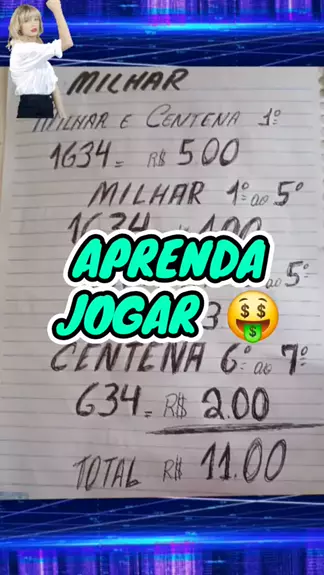 MILHAR
MILHAR E CENTENA 1º
1634 = R$ 5.00
MILHAR 1º ao 5º
1634
APRENDA
ao 5º
JOGAR
CENTENA 6º ao 7º
634 = R$ 2.00
TOTAL R$ 11.00